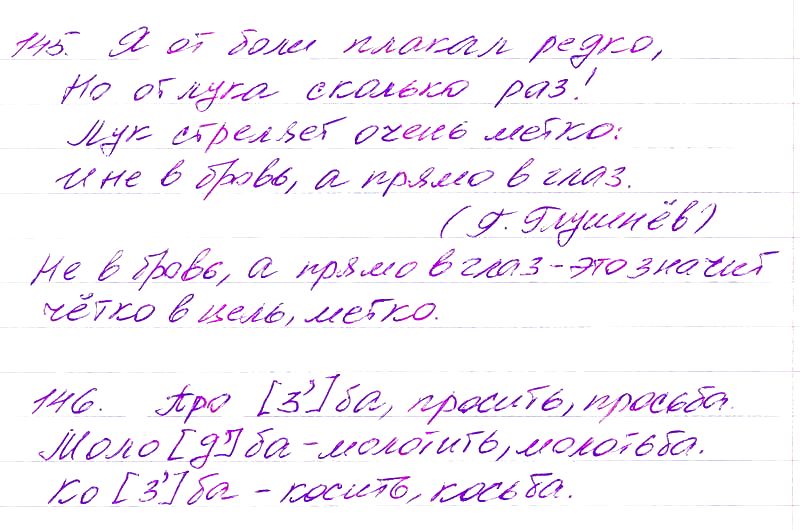 145. Я от боли плакал редко,
Но от лука сколько раз!
Лук стреляет очень метко:
И не в бровь, а прямо в глаз.
(Г. Глушнёв)
Не в бровь, а прямо в глаз - это значит
чётко в цель, метко.
146. Про [З']ба, просить, просьба.
Моло [д']ба - молотить, молотьба.
Ко [З']ба - косить, косьба.